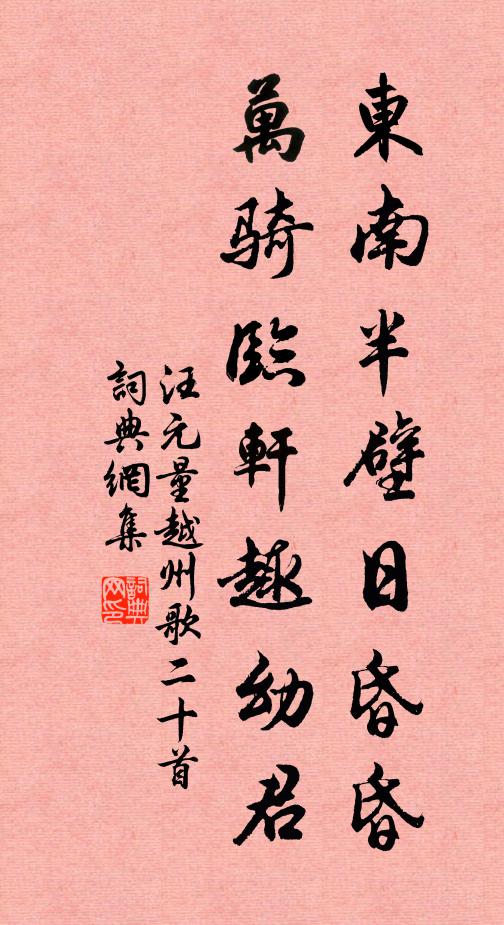 東南半壁日昏昏
萬騎臨軒趣幼君
汪元量越州歌二十首
詞典網集
詞典网印